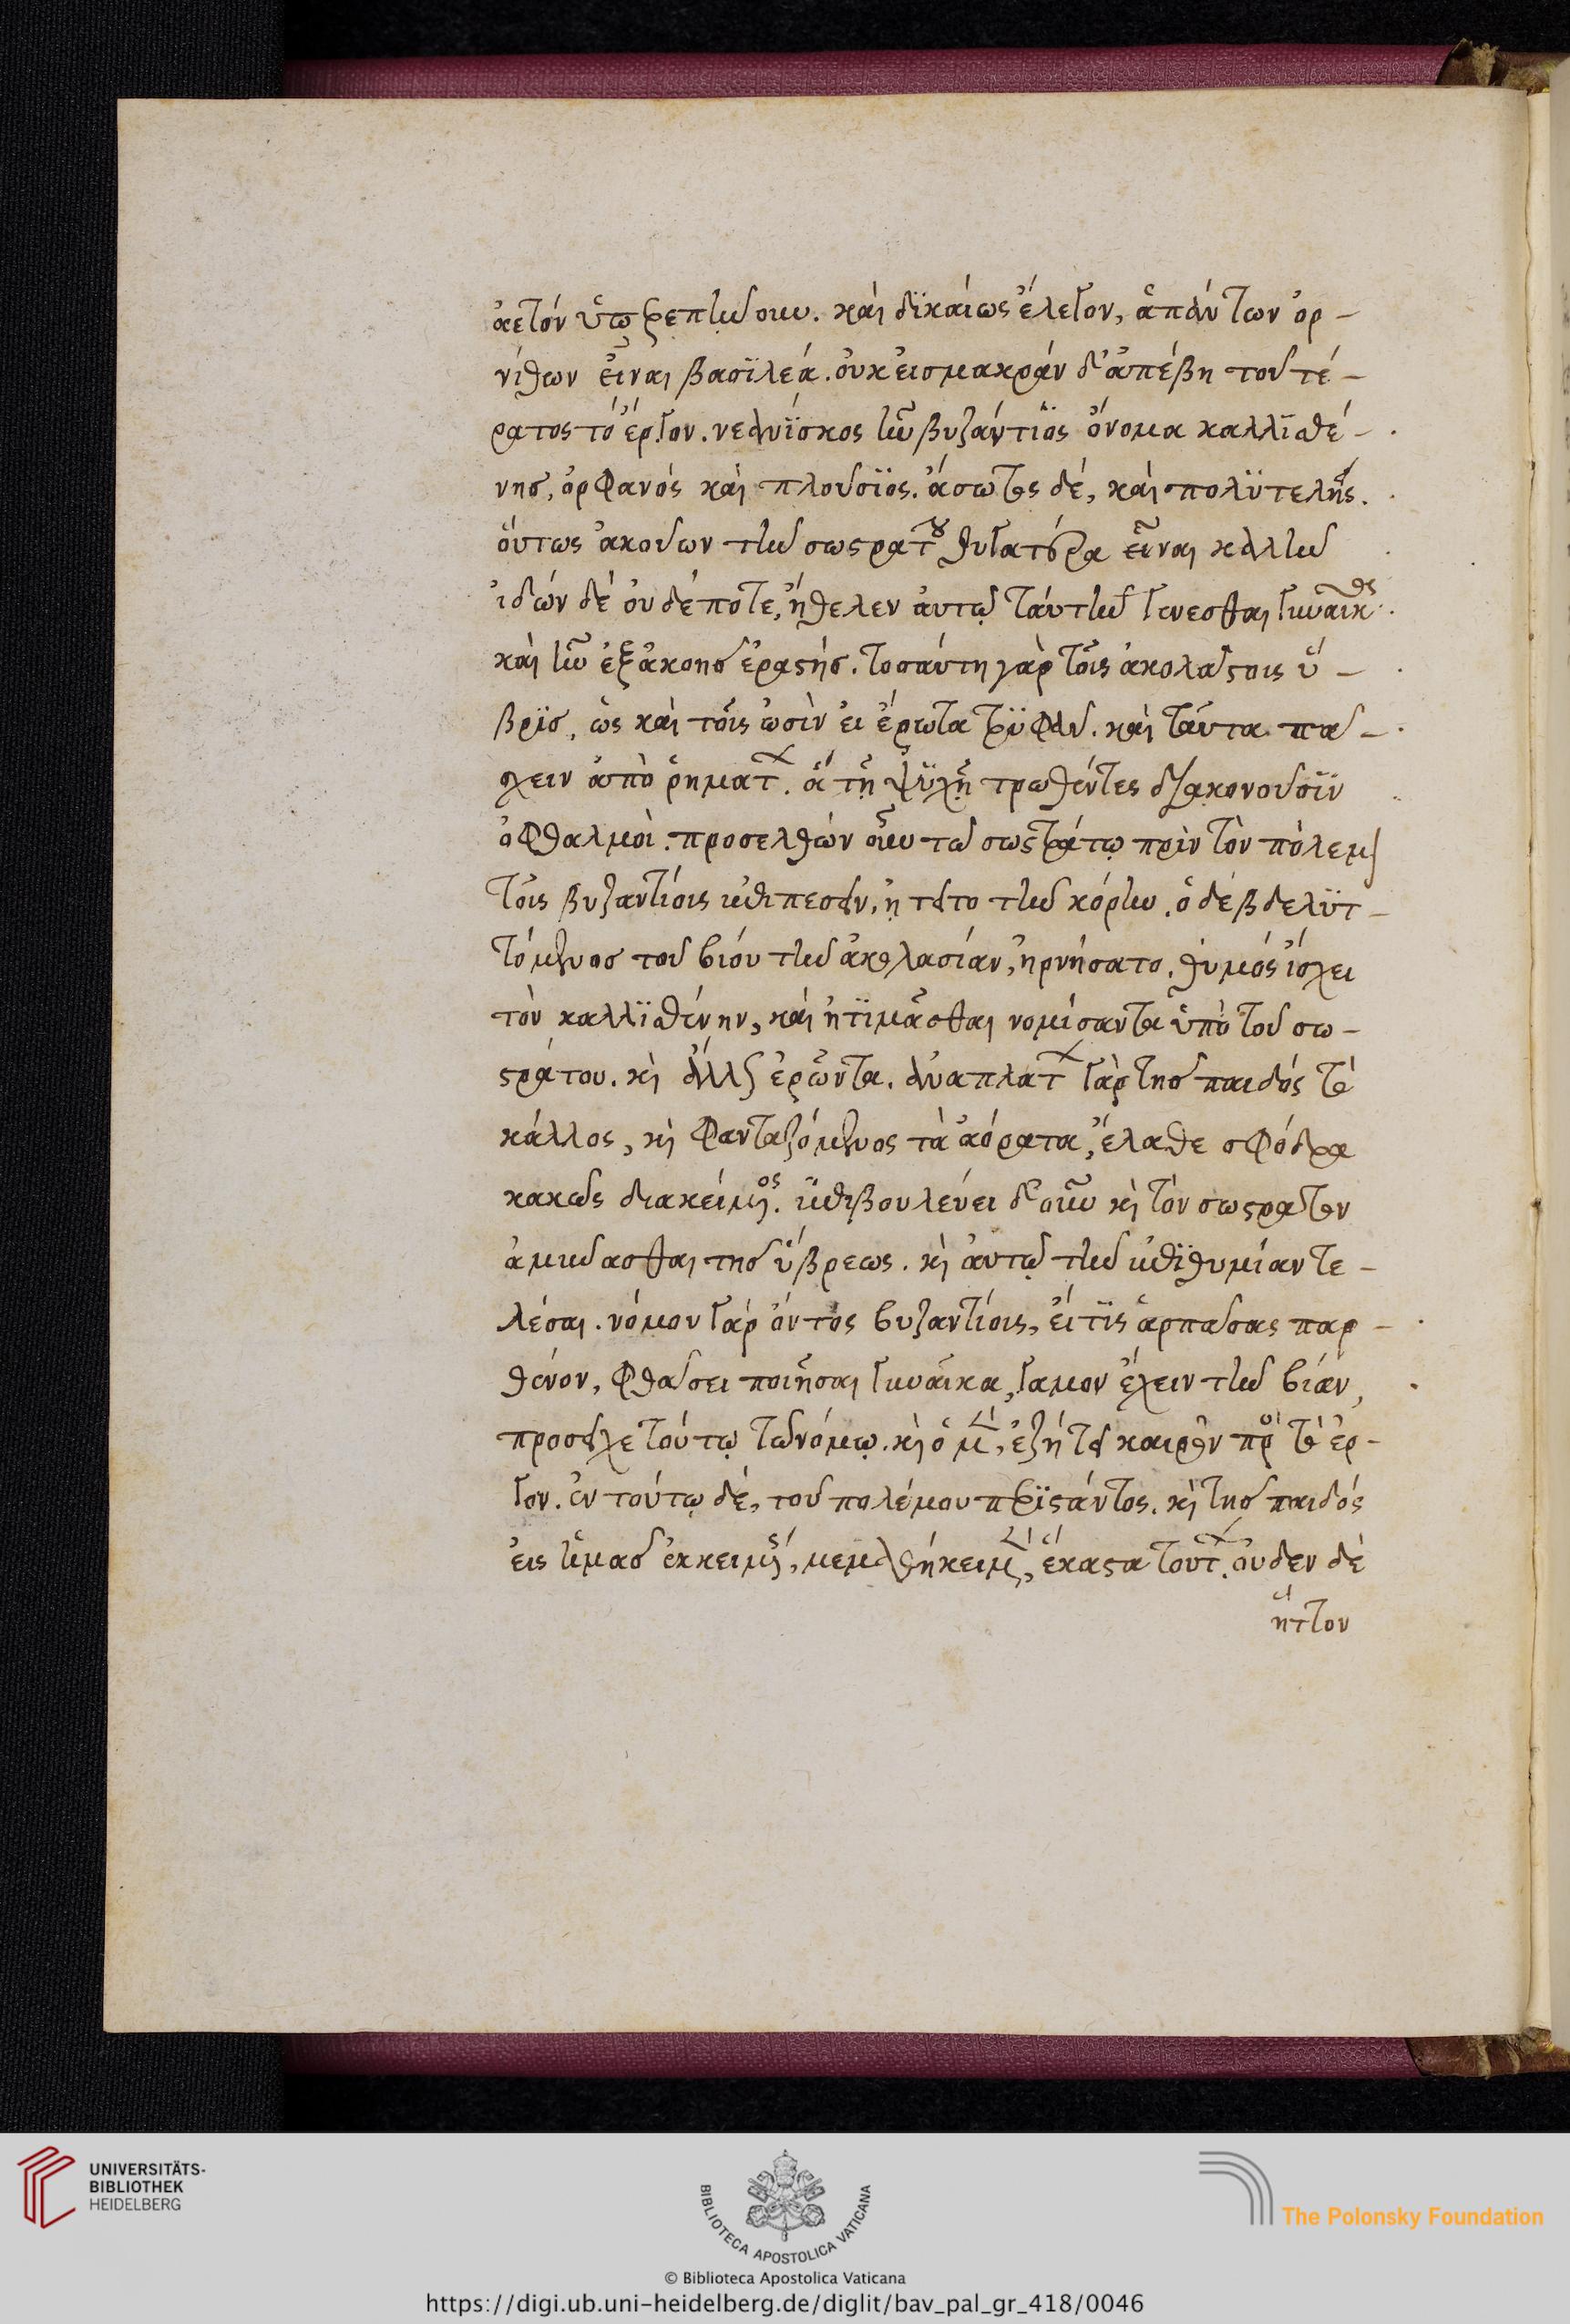 ἀετόν ὑποτρεπτὴν οὖν. καὶ δικαίως ἔλεγον, ἁπάντων ὀρ-
νίθων εἶναι βασιλέα. οὐκ εἰσμακράν δ' ἀπέβη τοῦ τέ-
ρατος τὸ ἔργον. νεανίσκος ἦν βυζάντιος ὄνομα καλλισθέ-
νης, ὀρφανός καὶ πλούσιος. ἄσωτος δέ, καὶ πολυτελής.
οὕτως ἀκούων τὴν σωστράτου θυγατέρα εἶναι καλὴν
ἰδών δὲ οὐδέποτε, ἤθελεν αὐτῷ ταύτην γενέσθαι γυναῖκα
καὶ ἦν ἐξ ἀκοῆς ἐραστής. τοσαύτη γὰρ τοῖς ἀκολάστοις ὕ-
βρις, ὡς καὶ τοῖς ὠσὶν εἰ ἔρωτα τρυφᾶν. καὶ ταῦτα πάσ-
χειν ἀπὸ ῥημάτων. ἃ τῇ ψυχῇ τρωθέντες διακονοῦσιν
ὀφθαλμοί. προσελθών οὖν τῷ σωστράτῳ πρὶν τὸν πόλεμον
τοῖς βυζαντίοις ἐπιπεσεῖν, ᾐτεῖτο τὴν κόρην. ὁ δὲ βδελυτ-
τόμενος τοῦ βίου τὴν ἀκολασίαν, ἠρνήσατο. θυμός ἴσχει
τὸν καλλισθένην, καὶ ἠτιμᾶσθαι νομίσαντα ὑπὸ τοῦ σω-
στράτου. καὶ ἄλλως ἐρῶντα. ἀναπλάττων γὰρ τῆς παιδός τὸ
κάλλος, καὶ φανταζόμενος τὰ ἀόρατα, ἔλαθε σφόδρα
κακῶς διακείμενος. ἐπιβουλεύει δ' οὖν καὶ τὸν σωστράτον
ἀμύνασθαι τῆς ὕβρεως. καὶ αὐτῷ τὴν ἐπιθυμίαν τε-
λέσαι. νόμου γὰρ ὄντος βυζαντίοις, εἴ τις ἁρπάσας παρ-
θένον, φθάσει ποιῆσαι γυναῖκα, γάμον ἔχειν τὴν βίαν,
προσεῖχε τούτῳ τῷ νόμῳ. καὶ ὁ μὲν, ἐζήτει καιρὸν πρὸς τὸ ἔρ-
γον. ἐν τούτῳ δὲ, τοῦ πολέμου περιστάντος. καὶ τῆς παιδός
εἰς ἡμᾶς ἐκκειμένης, μεμαθήκει μὲν, ἕκαστα τούτων. οὐδεν δὲ
ἧττον
UNIVERSITÄTS-
BIBLIOTHEK
HEIDELBERG
BIBLIOTECA APOSTOLICA VATICANA
The Polonsky Foundation
© Biblioteca Apostolica Vaticana
https://digi.ub.uni-heidelberg.de/diglit/bav_pal_gr_418/0046